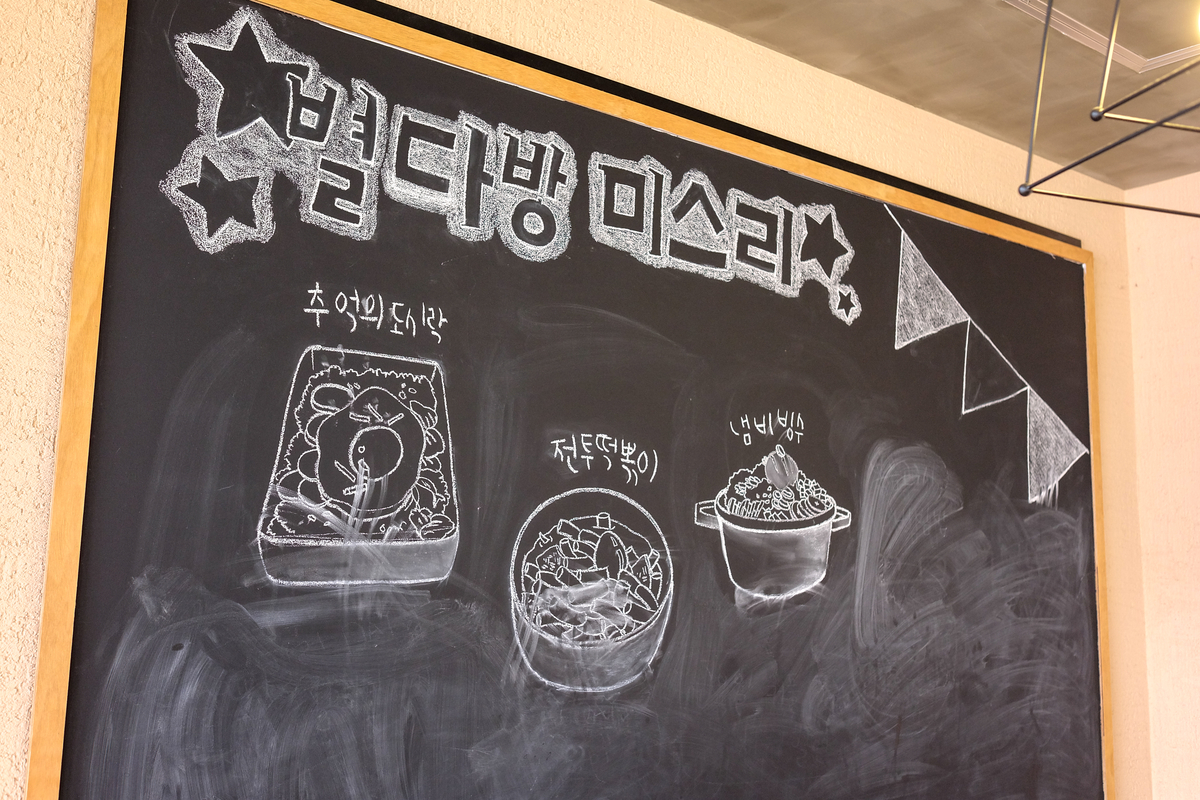 별다방 미스리
추억의 도시락
전투떡볶이
냄비빙수